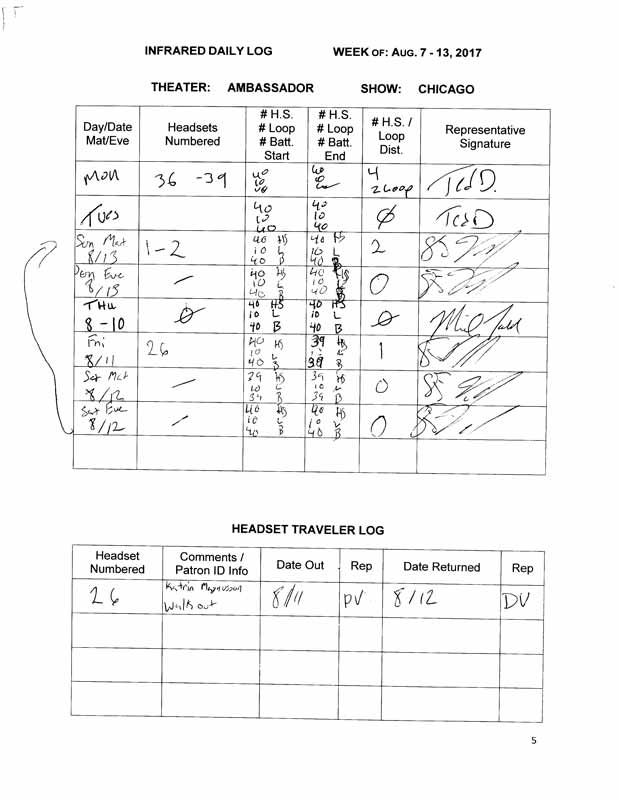 INFRARED DAILY LOG WEEK OF: AUG. 7 - 13, 2017
THEATER: AMBASSADOR SHOW: CHICAGO
Day/Date Mat/Eve Headsets Numbered # H.S. # Loop # Batt. Start # H.S. # Loop # Batt. End # H.S. / Loop Dist. Representative Signature
Mon 36 -39 40 10 40 4 2 Loop Ted D.
Tues 40 10 40 40 10 40 Ø Ted D
Sun Mat 8/13 1-2 40 HS 10 L 40 B 40 HS 10 L 40 B 2
Sun Eve 8/13 — 40 HS 10 L 40 B 40 HS 10 L 40 B 0
THU 8-10 Ø 40 HS 10 L 40 B 40 HS 10 L 40 B Ø
Fri 8/11 26 40 HS 10 L 40 B 39 HS 39 B 1
Sat Mat 8/12 — 39 HS 10 L 39 B 39 HS 10 L 39 B 0
Sat Eve 8/12 — 40 HS 10 L 40 B 40 HS 10 L 40 B 0
HEADSET TRAVELER LOG
Headset Numbered Comments / Patron ID Info Date Out Rep Date Returned Rep
26 Katrin Magnusson Walk out 8/11 DV 8/12 DV
5